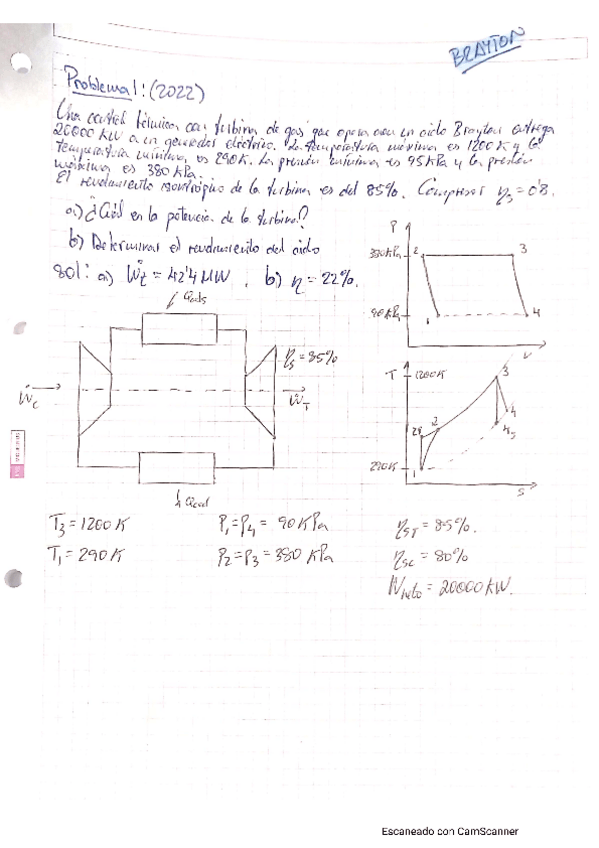 BRAYTON
Problema 1: (2022)
Una central térmica con turbina de gas que opera con un ciclo Brayton entrega
20000 KW a un generador eléctrico. La temperatura máxima es 1200 K y la
temperatura mínima es 290K. La presión mínima es 95 KPa y la presión
máxima es 380 KPa.
El rendimiento isentrópico de la turbina es del 85%. Compresor η_s = 0'8.
a) ¿Cuál es la potencia de la turbina?
b) Determinar el rendimiento del ciclo
Sol: a) Ẇt = 42'4 MW. b) η = 22%.
P
380KPa
2
3
90KPa
1
4
V
ηs = 85%
Ẇc
ẆT
T
1200K
3
2s
2
4
4s
290K
1
S
T3 = 1200 K
P1 = P4 = 90 KPa
ηST = 85%.
T1 = 290 K
P2 = P3 = 380 KPa
ηSC = 80%
Wneto = 20000 KW.
Escaneado con CamScanner